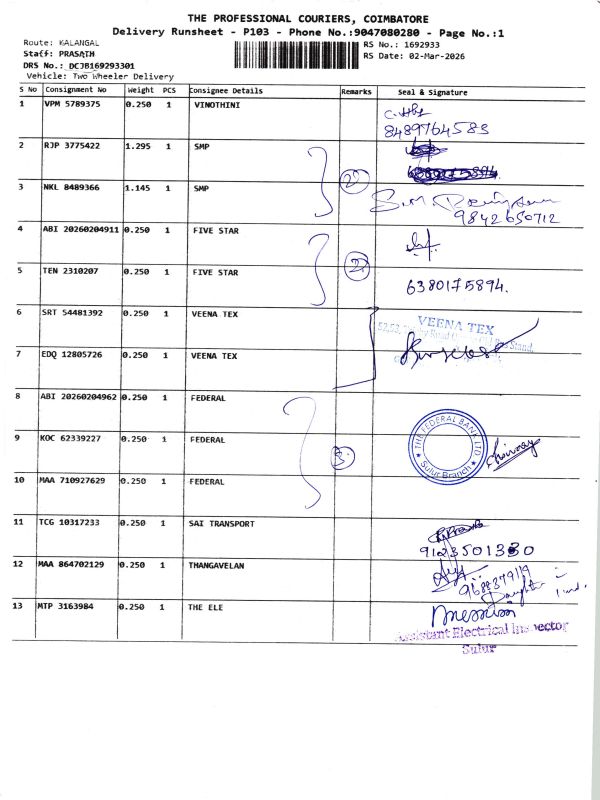 THE PROFESSIONAL COURIERS, COIMBATORE
Delivery Runsheet - P103 - Phone No.:9047080280 - Page No.:1
Route: KALANGAL
RS No.: 1692933
Staff: PRASATH
RS Date: 02-Mar-2026
DRS No.: DCJB169293301
Vehicle: Two Wheeler Delivery
S No Consignment No Weight PCS Consignee Details Remarks Seal & Signature
1 VPM 5789375 0.250 1 VINOTHINI
8489764583
2 RJP 3775422 1.295 1 SMP
3 NKL 8489366 1.145 1 SMP
2
9842650712
4 ABI 20260204911 0.250 1 FIVE STAR
5 TEN 2310207 0.250 1 FIVE STAR
2
6380175894.
6 SRT 54481392 0.250 1 VEENA TEX
VEENA TEX
7 EDQ 12805726 0.250 1 VEENA TEX
8 ABI 20260204962 0.250 1 FEDERAL
9 KOC 62339227 0.250 1 FEDERAL
3
THE FEDERAL BANK LTD
Sulur Branch
10 MAA 710927629 0.250 1 FEDERAL
11 TCG 10317233 0.250 1 SAI TRANSPORT
9123501330
12 MAA 864702129 0.250 1 THANGAVELAN
Daughter
13 MTP 3163984 0.250 1 THE ELE
Assistant Electrical Inspector
Sulur